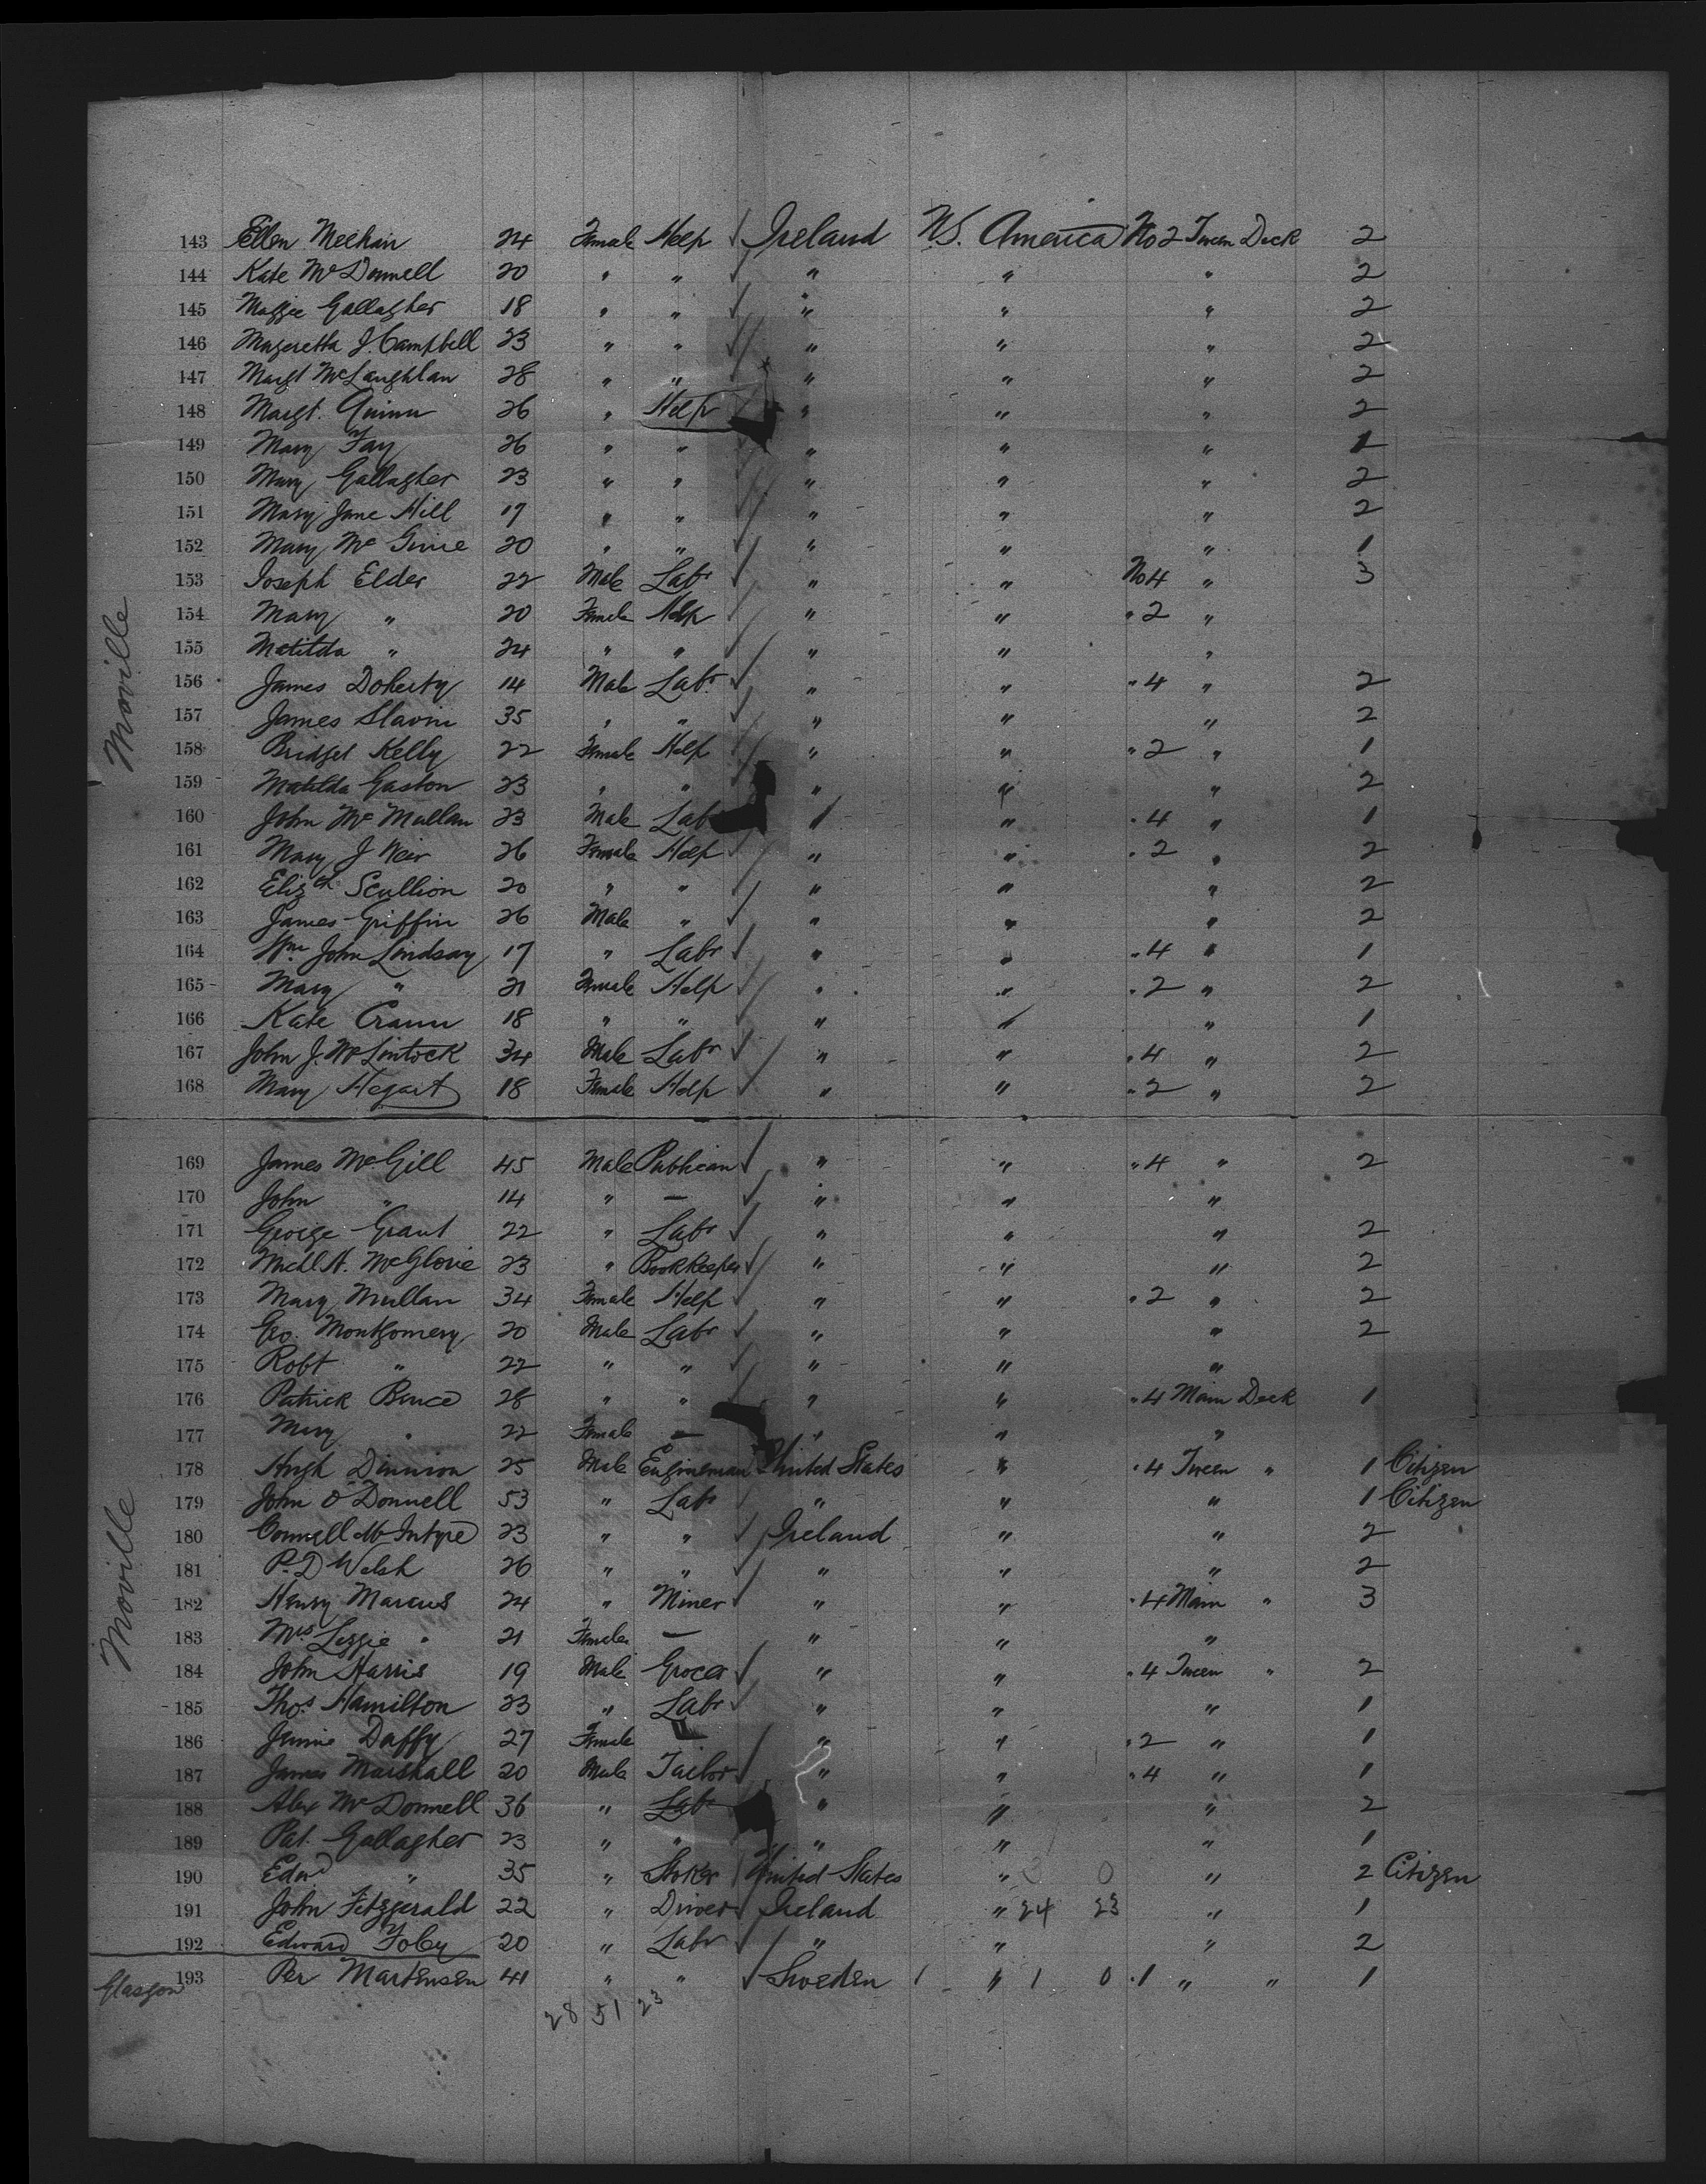 143 Ellen Meehan 24 Female Help Ireland U.S. America No 2 Tween Deck 2
144 Kate McDonnell 20 " " " " " 2
145 Maggie Gallagher 18 " " " " " 2
146 Mageretta J. Campbell 23 " " " " " 2
147 Margt McLaughlan 28 " " " " " 2
148 Margt. Quinn 26 " Help " " " 2
149 Mary Fay 26 " " " " " 1
150 Mary Gallagher 23 " " " " " 2
151 Mary Jane Hill 17 " " " " " 2
152 Mary Mc Ginie 20 " " " " " 1
153 Joseph Elder 22 Male Labr " " No 4 " 3
154 Mary " 20 Female Help " " " 2 "
155 Matilda " 24 " " " " "
156 James Doherty 14 Male Labr " " " 4 " 2
157 James Slavin 35 " " " " " 2
158 Bridget Kelly 22 Female Help " " " 2 " 1
159 Matilda Gaston 23 " " " " " 2
160 John Mc Mullan 23 Male Lab " " " 4 " 1
161 Mary J Weir 26 Female Help " " " 2 " 2
162 Elizth Scullion 20 " " " " " 2
163 James Griffin 26 Male " " " " 2
164 Wm John Lindsay 17 " Labr " " " 4 " 1
165 Mary " 21 Female Help " " " 2 " 2
166 Kate Crann 18 " " " " " 1
167 John J. McLintock 34 Male Labr " " " 4 " 2
168 Mary Hegart 18 Female Help " " " 2 " 2
Moville
169 James McGill 45 Male Publican " " " 4 " 2
170 John " 14 " — " " "
171 George Grant 22 " Labr " " " 2
172 Michl H. McGlone 23 " Bookkeeper " " " 2
173 Mary Mullan 34 Female Help " " " 2 " 2
174 Geo. Montgomery 20 Male Labr " " " 2
175 Robt " 22 " " " " "
176 Patrick Bruce 28 " " " " " 4 Main Deck 1
177 Mary " 22 Female — " " "
178 Hugh Dinnion 25 Male Engineman United States " " 4 Tween " 1 Citizen
179 John O'Donnell 53 " Labr " " " 1 Citizen
180 Connell McIntyre 23 " " Ireland " " 2
181 P. D Welsh 26 " " " " " 2
182 Henry Marcus 24 " Miner " " " 4 Main " 3
183 Mrs Lizzie " 21 Female — " " "
184 John Harris 19 Male Grocer " " " 4 Tween " 2
185 Thos Hamilton 23 " Labr " " " 1
186 Jennie Daffy 27 Female — " " " 2 " 1
187 James Marshall 20 Male Tailor " " " 4 " 1
188 Alex McDonnell 36 " Labr " " " 2
189 Pat. Gallagher 23 " " " " " 1
190 Edwd " 35 " Stoker United States " 0 " 2 Citizen
191 John Fitzgerald 22 " Driver Ireland " 24 23 " 1
192 Edward Foley 20 " Labr " " " 2
Moville
Glasgow 193 Per Martensen 41 " " Sweden 1 " 1 0 " 1 " " 1
28 51 23